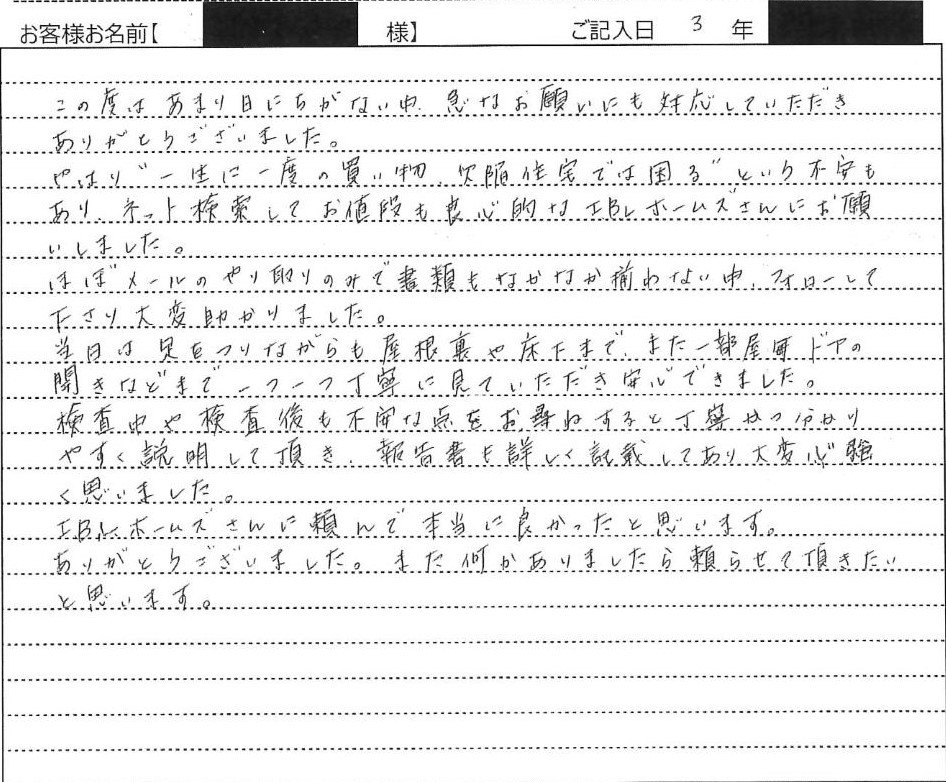 お客様お名前【 様】 ご記入日 3 年
この度は あまり日にちがない中、急なお願いにも対応していただき
ありがとうございました。
やはり"一生に一度の買い物、欠陥住宅では困る"という不安も
あり、ネット検索して お値段も良心的な IBLホームズさんにお願
いしました。
ほぼメールのやり取りのみで書類もなかなか揃わない中、フォローして
下さり大変助かりました。
当日は足をつりながらも屋根裏や床下まで、また一部屋毎ドアの
開きなどまで一つ一つ丁寧に見ていただき安心できました。
検査中や検査後も不安な点をお尋ねすると丁寧かつ分かり
やすく説明して頂き、報告書も詳しく記載してあり大変心強
く思いました。
IBLホームズさんに頼んで本当に良かったと思います。
ありがとうございました。また何かありましたら頼らせて頂きたい
と思います。